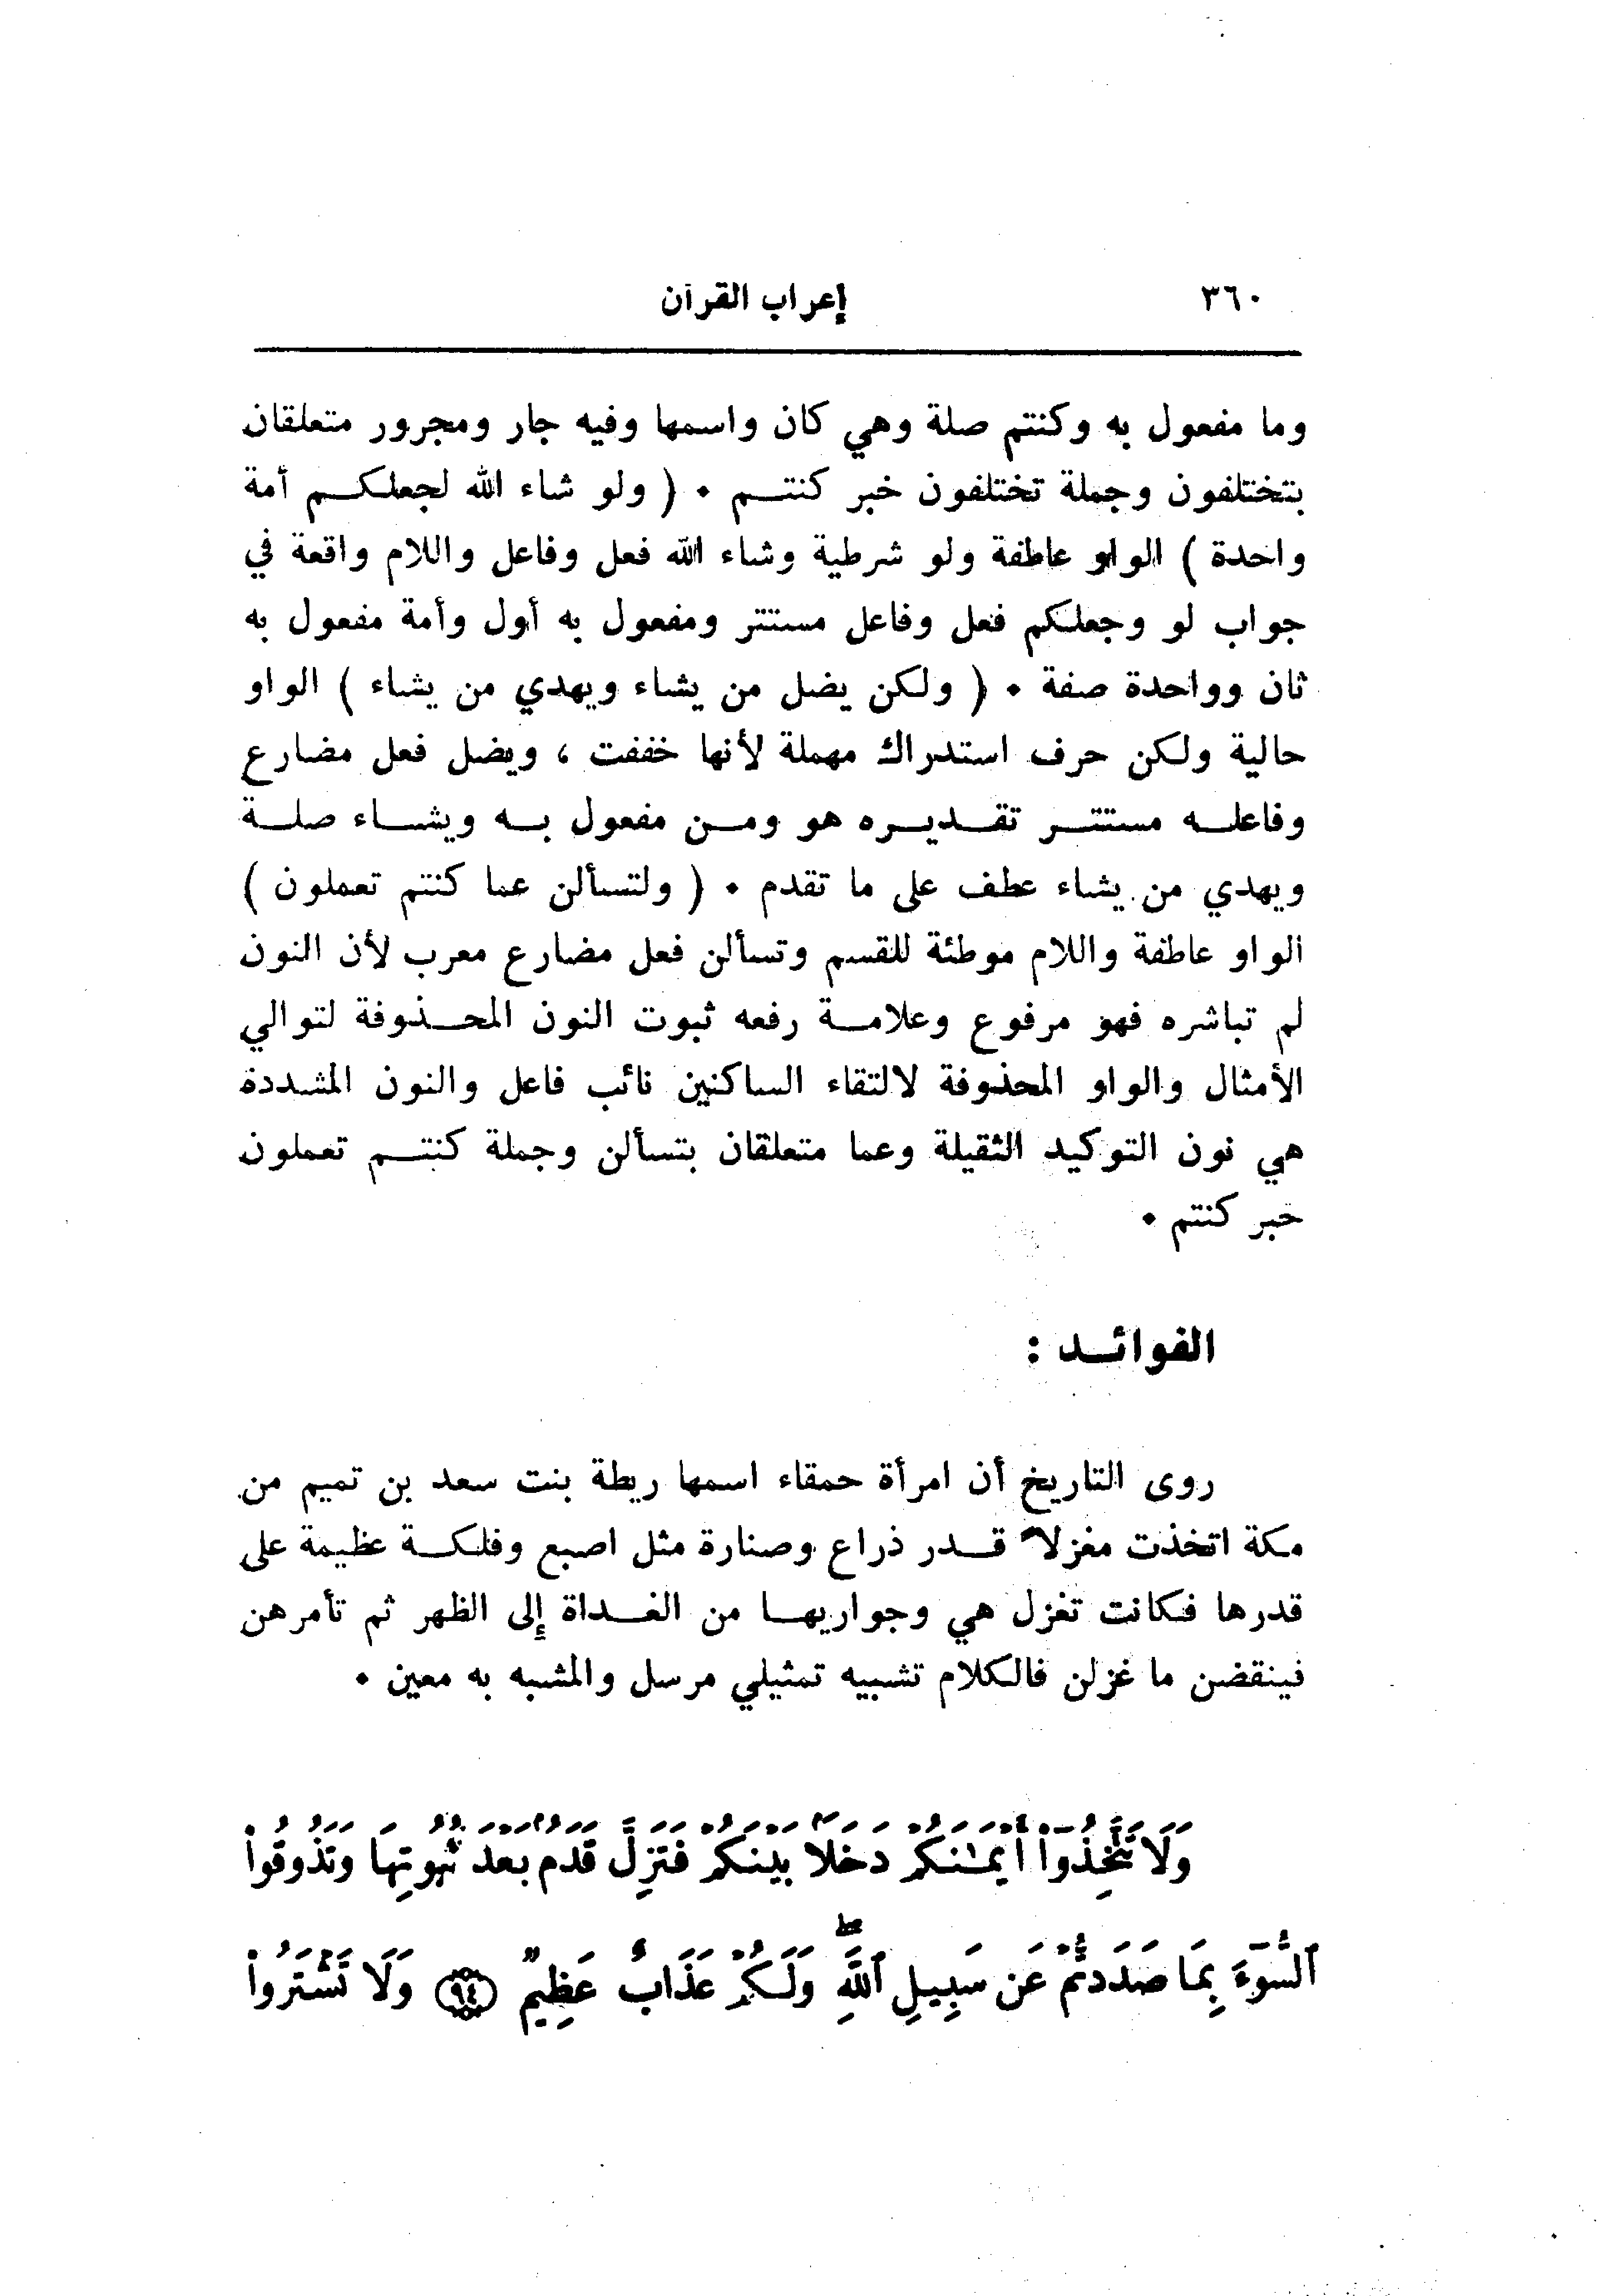 ٣٦٠ إعراب القرآن
وما مفعول به وكنتم صلة وهي كان واسمها وفيه جار ومجرور متعلقان
بتختلفون وجملة تختلفون خبر كنتم . ( ولو شاء الله لجعلكم أمة
واحدة ) الواو عاطفة ولو شرطية وشاء الله فعل وفاعل واللام واقعة في
جواب لو وجعلكم فعل وفاعل مستتر ومفعول به أول وأمة مفعول به
ثان وواحدة صفة . ( ولكن يضل من يشاء ويهدي من يشاء ) الواو
حالية ولكن حرف استدراك مهملة لأنها خففت ، ويضل فعل مضارع
وفاعله مستتر تقديره هو ومن مفعول به ويشاء صلة
ويهدي من يشاء عطف على ما تقدم . ( ولتسألن عما كنتم تعملون )
الواو عاطفة واللام موطئة للقسم وتسألن فعل مضارع معرب لأن النون
لم تباشره فهو مرفوع وعلامة رفعه ثبوت النون المحذوفة لتوالي
الأمثال والواو المحذوفة لالتقاء الساكنين نائب فاعل والنون المشددة
هي نون التوكيد الثقيلة وعما متعلقان بتسألن وجملة كنتم تعملون
خبر كنتم .
الفوائد :
روى التاريخ أن امرأة حمقاء اسمها ريطة بنت سعد بن تميم من
مكة اتخذت مغزلاً قدر ذراع وصنارة مثل اصبع وفلكة عظيمة على
قدرها فكانت تغزل هي وجواريها من الغداة إلى الظهر ثم تأمرهن
فينقضن ما غزلن فالكلام تشبيه تمثيلي مرسل والمشبه به معين .
وَلَا تَتَّخِذُوٓاْ أَيْمَـٰنَكُمْ دَخَلَاۢ بَيْنَكُمْ فَتَزِلَّ قَدَمُۢ بَعْدَ ثُبُوتِهَا وَتَذُوقُواْ
ٱلسُّوٓءَ بِمَا صَدَدتُّمْ عَن سَبِيلِ ٱللَّهِ ۖ وَلَكُمْ عَذَابٌ عَظِيمٌ ﴿٩٤﴾ وَلَا تَشْتَرُواْ